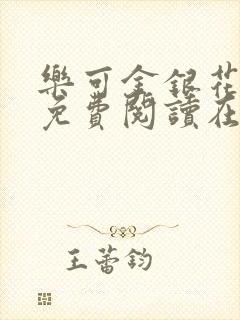 樂可金銀花
免費閱讀在
王蕾鈞